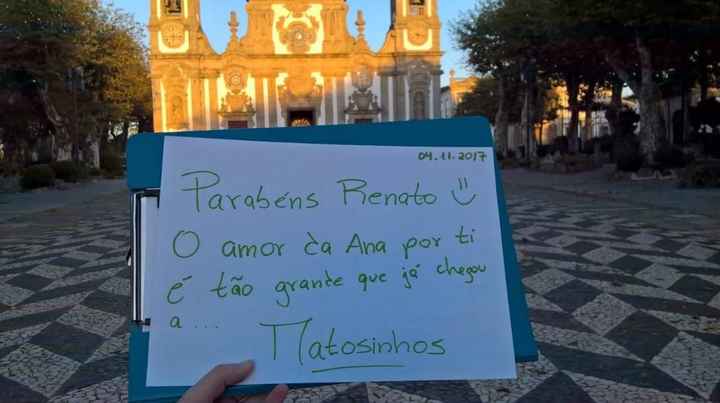 04.11.2017
Parabéns Renato :)
O amor da Ana por ti
é tão grande que já chegou
a ...
Matosinhos